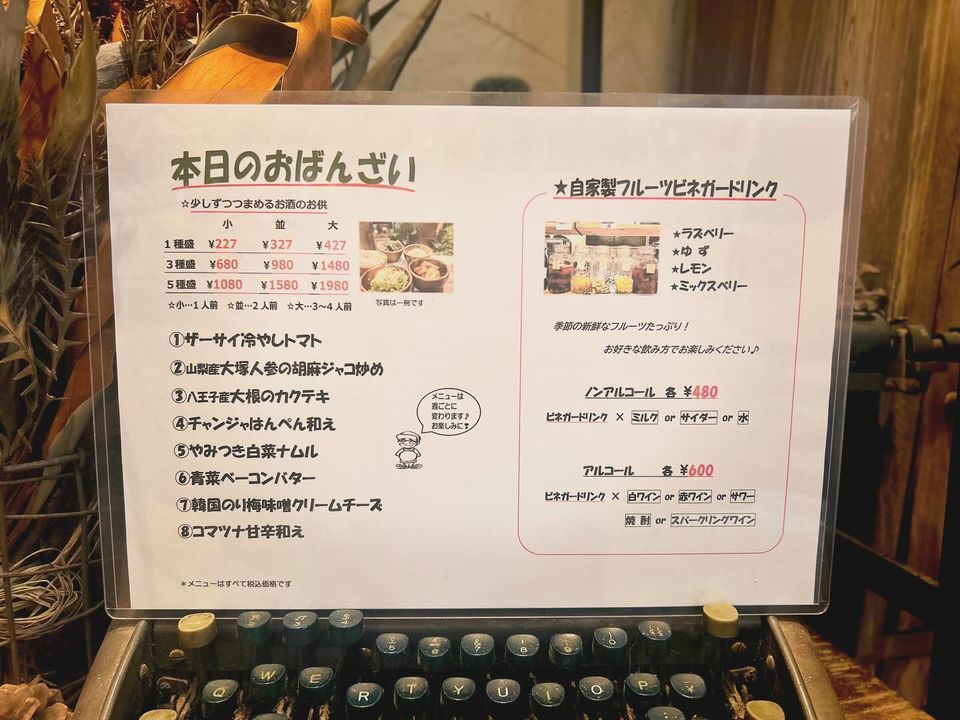 本日のおばんざい
☆少しずつつまめるお酒のお供
小 並 大
1種盛 ¥227 ¥327 ¥427
3種盛 ¥680 ¥980 ¥1480
5種盛 ¥1080 ¥1580 ¥1980
☆小…1人前 ☆並…2人前 ☆大…3~4人前
写真は一例です
①ザーサイ冷やしトマト
②山梨産大塚人参の胡麻ジャコ炒め
③八王子産大根のカクテキ
④チャンジャはんぺん和え
⑤やみつき白菜ナムル
⑥青菜ベーコンバター
⑦韓国のり梅味噌クリームチーズ
⑧コマツナ甘辛和え
メニューは
週ごとに
変わります♪
お楽しみに!
*メニューはすべて税込価格です
★自家製フルーツビネガードリンク
★ラズベリー
★ゆず
★レモン
★ミックスベリー
季節の新鮮なフルーツたっぷり!
お好きな飲み方でお楽しみください♪
ノンアルコール 各 ¥480
ビネガードリンク × ミルク or サイダー or 水
アルコール 各 ¥600
ビネガードリンク × 白ワイン or 赤ワイン or サワー
焼酎 or スパークリングワイン
Q W E R T Y U I O P